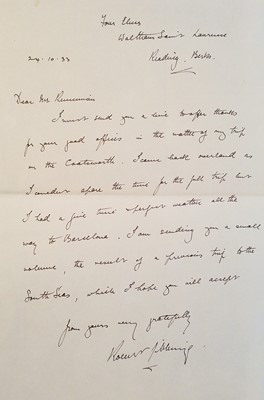 Four Elms
Waltham Saint Laurence
Reading. Berks.
24.10.33
Dear Mr Runciman
I must send you a line to offer thanks
for your good offices in the matter of my trip
on the I came back overland as
I couldn't spare the time for the full trip but
I had a fine time & perfect weather all the
way to Barcelona. I am sending you a small
volume, the result of a previous trip to the
South Seas, which I hope you will accept
from yours very gratefully
Robert Gibbings